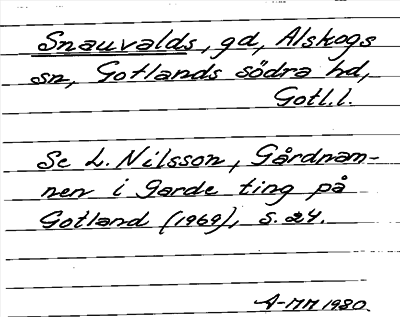 Snauvalds, gd, Alskogs
sn, Gotlands södra hd,
Gotl.l.
Se L. Nilsson, Gårdnam-
nen i Garde ting på
Gotland (1969), s. 24.
A-MM 1980.